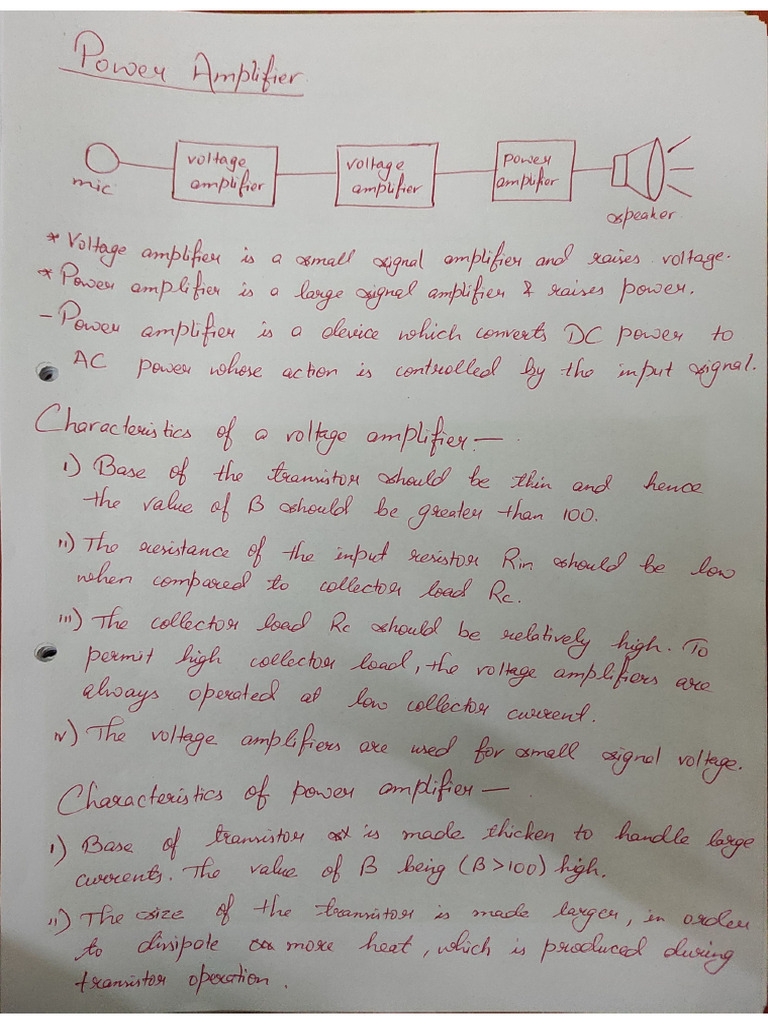 Power Amplifier
mic
voltage amplifier
voltage amplifier
power amplifier
speaker
* Voltage amplifier is a small signal amplifier and raises voltage.
* Power amplifier is a large signal amplifier & raises power.
- Power amplifier is a device which converts DC power to
AC power whose action is controlled by the input signal.
Characteristics of a voltage amplifier —
i) Base of the transistor should be thin and hence
the value of β should be greater than 100.
ii) The resistance of the input resistor Rin should be low
when compared to collector load Rc.
iii) The collector load Rc should be relatively high. To
permit high collector load, the voltage amplifiers are
always operated at low collector current.
iv) The voltage amplifiers are used for small signal voltage.
Characteristics of power amplifier —
i) Base of transistor is made thicken to handle large
currents. The value of β being (β>100) high.
ii) The size of the transistor is made larger, in order
to dissipate more heat, which is produced during
transistor operation.